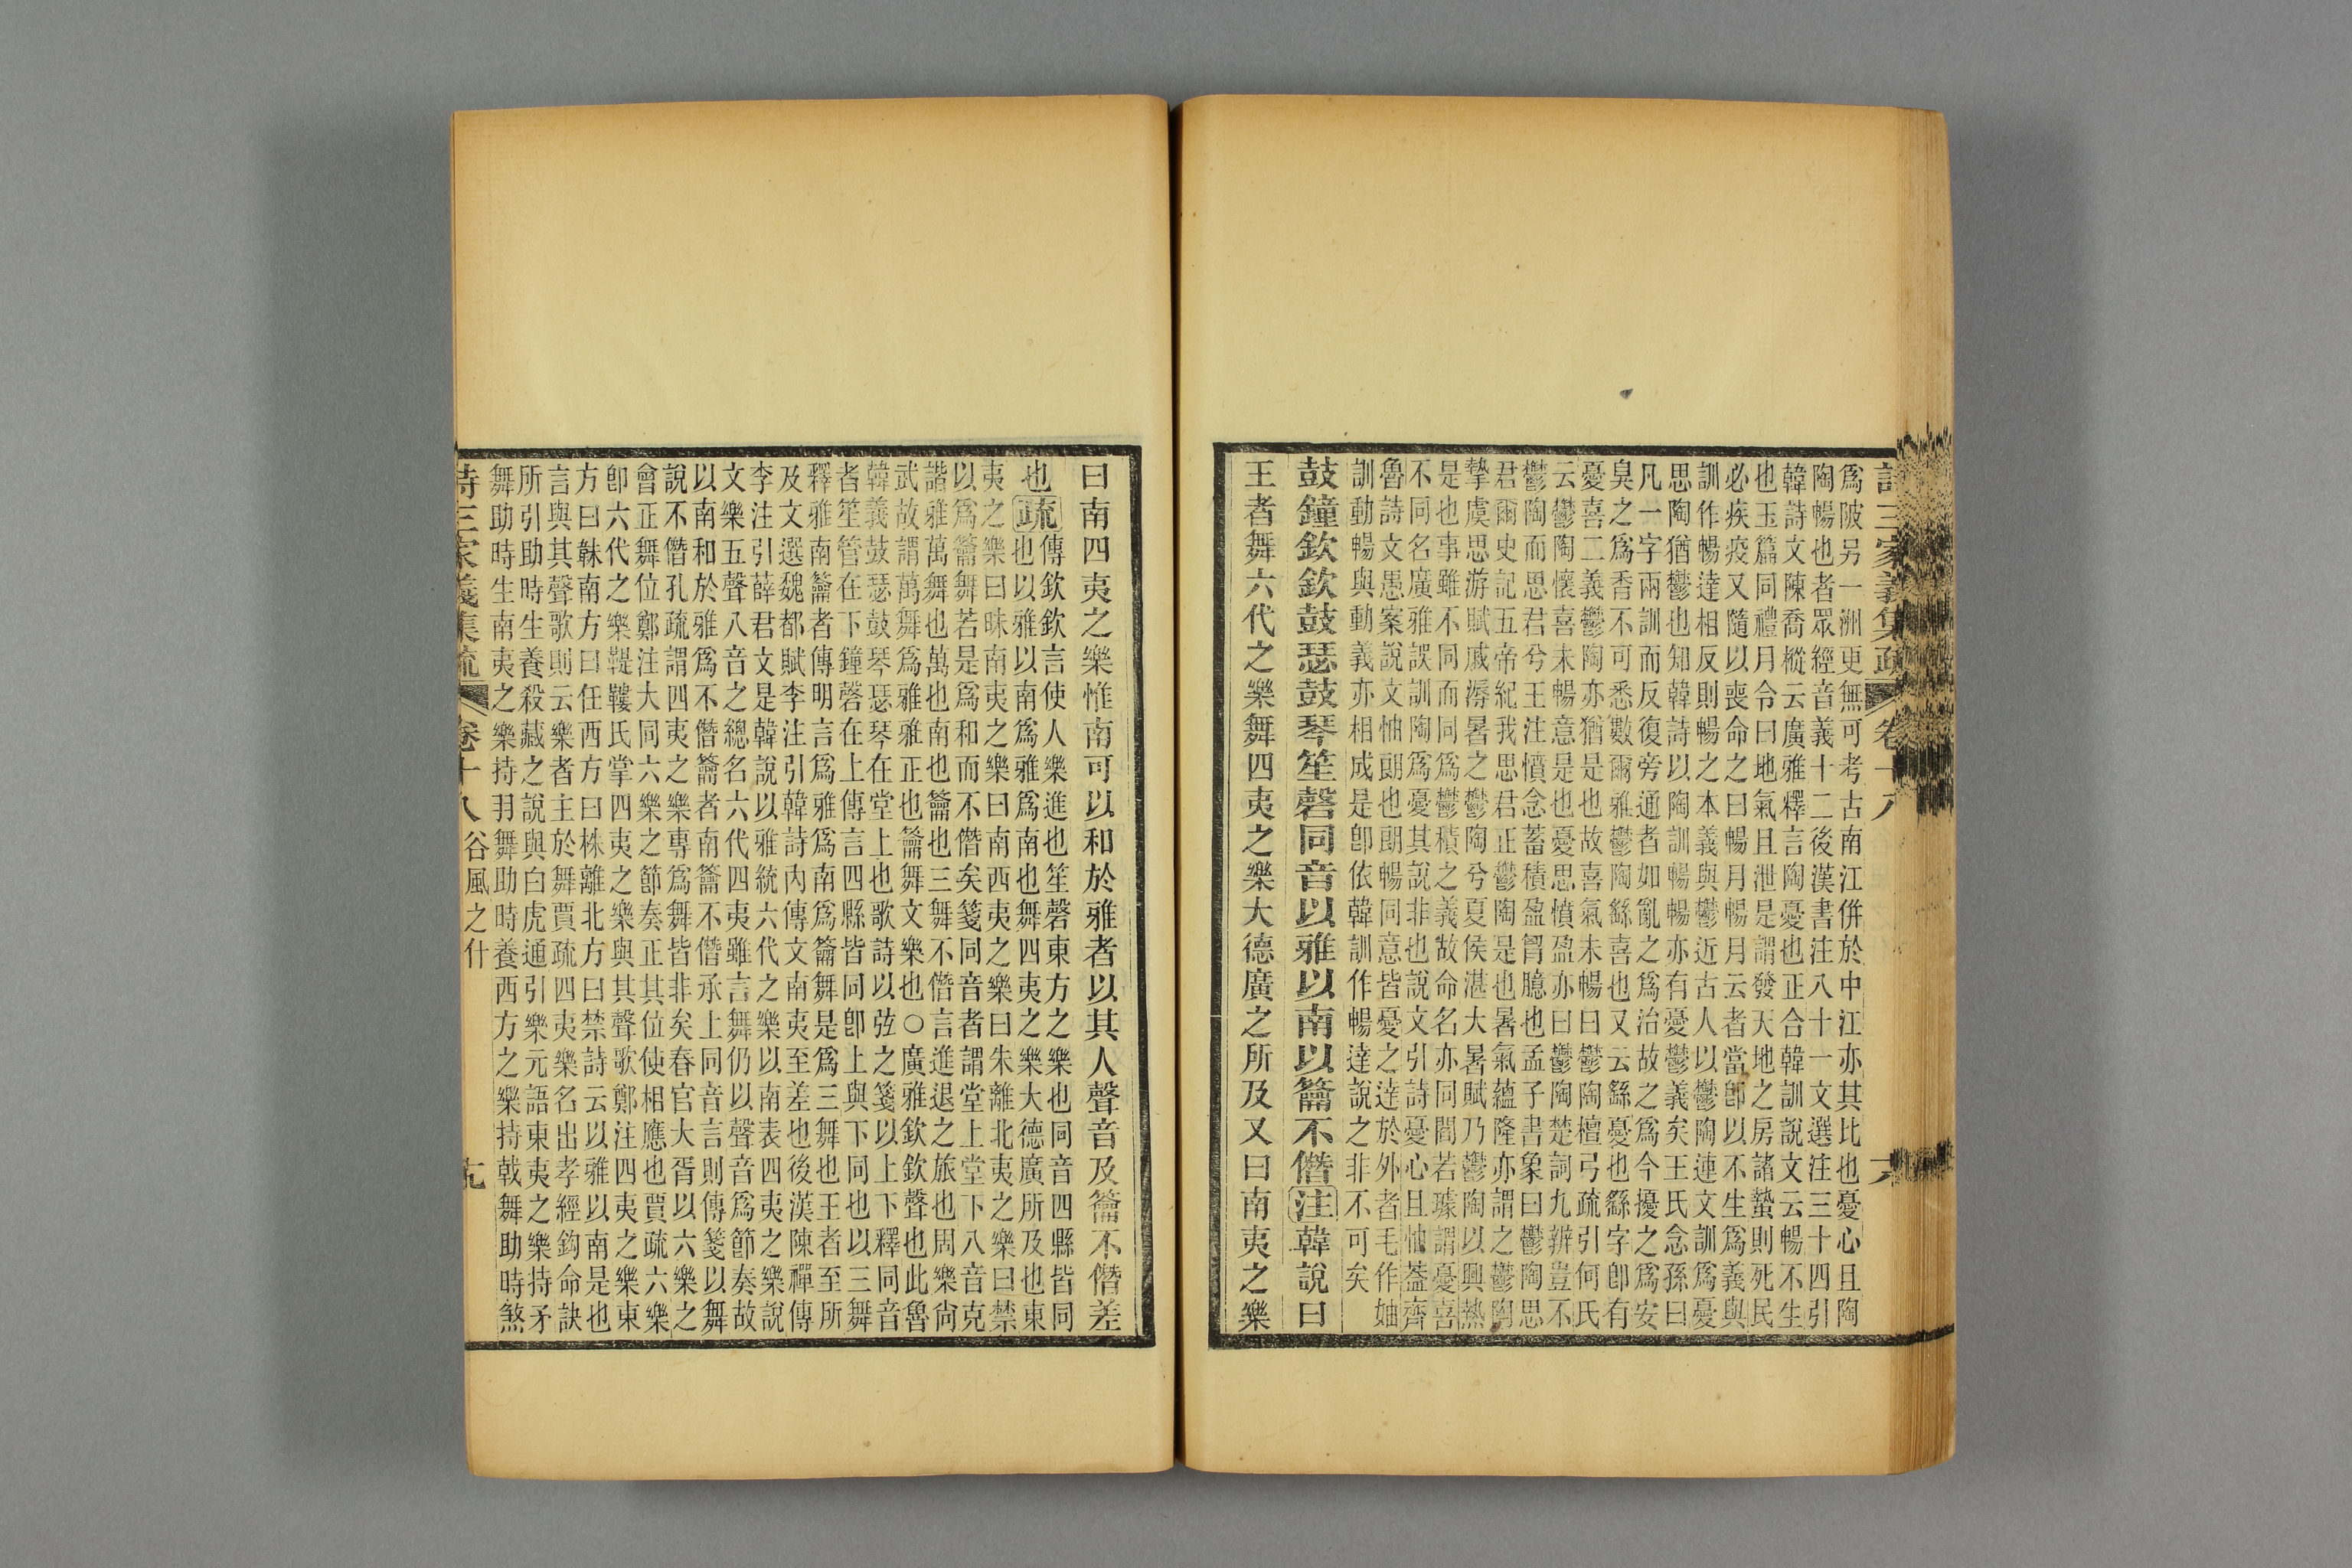 詩三家義集疏 卷十八
爲陂另一洲更無可考古南江併於中江亦其比也憂心且陶
陶暢也者眾經音義十二後漢書注八十一文選注三十四引
韓詩文陳喬樅云廣雅釋言陶憂也正合韓訓說文云暢不生
也玉篇同禮月令曰地氣且泄是謂發天地之房諸蟄則死民
必疾疫又隨以喪命之曰暢月暢月云者當卽以不生爲義與
訓作暢達相反則暢之本義與鬱近古人以鬱陶連文訓爲憂
思陶猶鬱也知韓詩以陶訓暢暢亦有憂鬱義矣王氏念孫曰
凡一字兩訓而反復旁通者如亂之爲治故之爲今擾之爲安
臭之爲香不可悉數爾雅鬱陶繇喜也又云繇憂也繇字卽有
憂喜二義鬱陶亦猶是也故喜氣未暢曰鬱陶檀弓疏引何氏
云鬱陶懷喜未暢意是也憂思憤盈亦曰鬱陶楚詞九辨豈不
鬱陶而思君兮王注憤念蓄積盈胷臆也孟子書象曰鬱陶思
君爾史記五帝紀我思君正鬱陶是也暑氣蘊隆亦謂之鬱陶
摯虞思游賦戚溽暑之鬱陶兮夏侯湛大暑賦乃鬱陶以興熱
是也事雖不同而同爲鬱積之義故命名亦同閻若璩謂憂喜
不同名廣雅誤訓陶爲憂其說非也說文引詩憂心且怞葢齊
魯詩文愚案說文怞朗也朗暢同意皆憂之達於外者毛作妯
訓動暢與動義亦相成是卽依韓訓作暢達說之非不可矣
鼓鐘欽欽鼓瑟鼓琴笙磬同音以雅以南以籥不僭注韓說曰
王者舞六代之樂舞四夷之樂大德廣之所及又曰南夷之樂
曰南四夷之樂惟南可以和於雅者以其人聲音及籥不僭差
也疏傳欽欽言使人樂進也笙磬東方之樂也同音四縣皆同
也以雅以南爲雅爲南也舞四夷之樂大德廣所及也東
夷之樂曰昧南夷之樂曰南西夷之樂曰朱離北夷之樂曰禁
以爲籥舞若是爲和而不僭矣箋同音者謂堂上堂下八音克
諧雅萬舞也萬也南也籥也三舞不僭言進退之旅也周樂尙
武故謂萬舞爲雅雅正也籥舞文樂也○廣雅欽欽聲也此魯
韓義鼓瑟鼓琴瑟琴在堂上也歌詩以弦之箋以上下釋同音
者笙管在下鐘磬在上傳言四縣皆同卽上與下同也以三舞
釋雅南籥者傳明言爲雅爲南爲籥舞是爲三舞也王者至所
及文選魏都賦李注引韓詩內傳文南夷至差也後漢陳禪傳
李注引薛君文是韓說以雅統六代之樂以南表四夷之樂說
文樂五聲八音之總名六代四夷雖言舞仍以聲音爲節奏故
以南和於雅爲不僭籥者南籥不僭承上同音言則傳箋以舞
說不僭孔疏謂四夷之樂專爲舞皆非矣春官大胥以六樂之
會正舞位鄭注大同六樂之節奏正其位使相應也賈疏六樂
卽六代之樂鞮鞻氏掌四夷之樂與其聲歌鄭注四夷之樂東
方曰韎南方曰任西方曰株離北方曰禁詩云以雅以南是也
言與其聲歌則云樂者主於舞賈疏四夷樂名出孝經鉤命訣
所引助時生養殺藏之說與白虎通引樂元語東夷之樂持矛
舞助時生南夷之樂持羽舞助時養西方之樂持戟舞助時煞
詩三家義集疏 卷十八 谷風之什